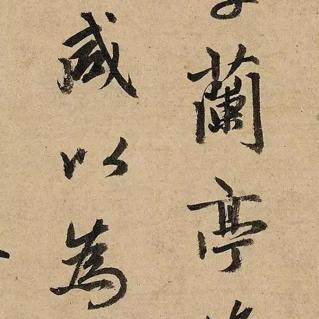 蘭亭
咸以為